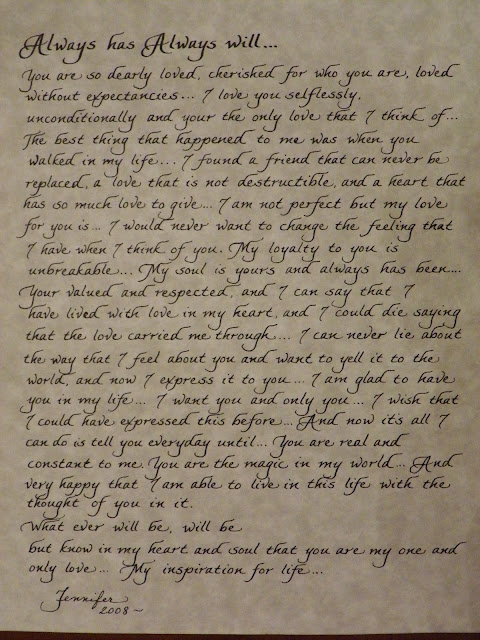 Always has Always will...
You are so dearly loved, cherished for who you are, loved
without expectancies... I love you selflessly,
unconditionally and your the only love that I think of...
The best thing that happened to me was when you
walked in my life... I found a friend that can never be
replaced, a love that is not destructible, and a heart that
has so much love to give... I am not perfect but my love
for you is... I would never want to change the feeling that
I have when I think of you. My loyalty to you is
unbreakable... My soul is yours and always has been...
Your valued and respected, and I can say that I
have lived with love in my heart, and I could die saying
that the love carried me through... I can never lie about
the way that I feel about you and want to yell it to the
world, and now I express it to you... I am glad to have
you in my life... I want you and only you... I wish that
I could have expressed this before... And now it's all I
can do is tell you everyday until... You are real and
constant to me. You are the magic in my world... And
very happy that I am able to live in this life with the
thought of you in it.
What ever will be, will be
but know in my heart and soul that you are my one and
only love... My inspiration for life...
Jennifer
2008~